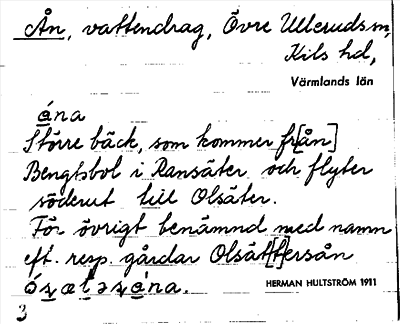 Ån, vattendrag, Övre Ulleruds sn,
Kils hd,
Värmlands län
ána
Större bäck, som kommer fr[ån]
Bengtsbol i Ransäter och flyter
söderut till Olsäter.
För övrigt benämnd med namn
eft. resp. gårdar Olsät[t]ersån
HERMAN HULTSTRÖM 1911
3